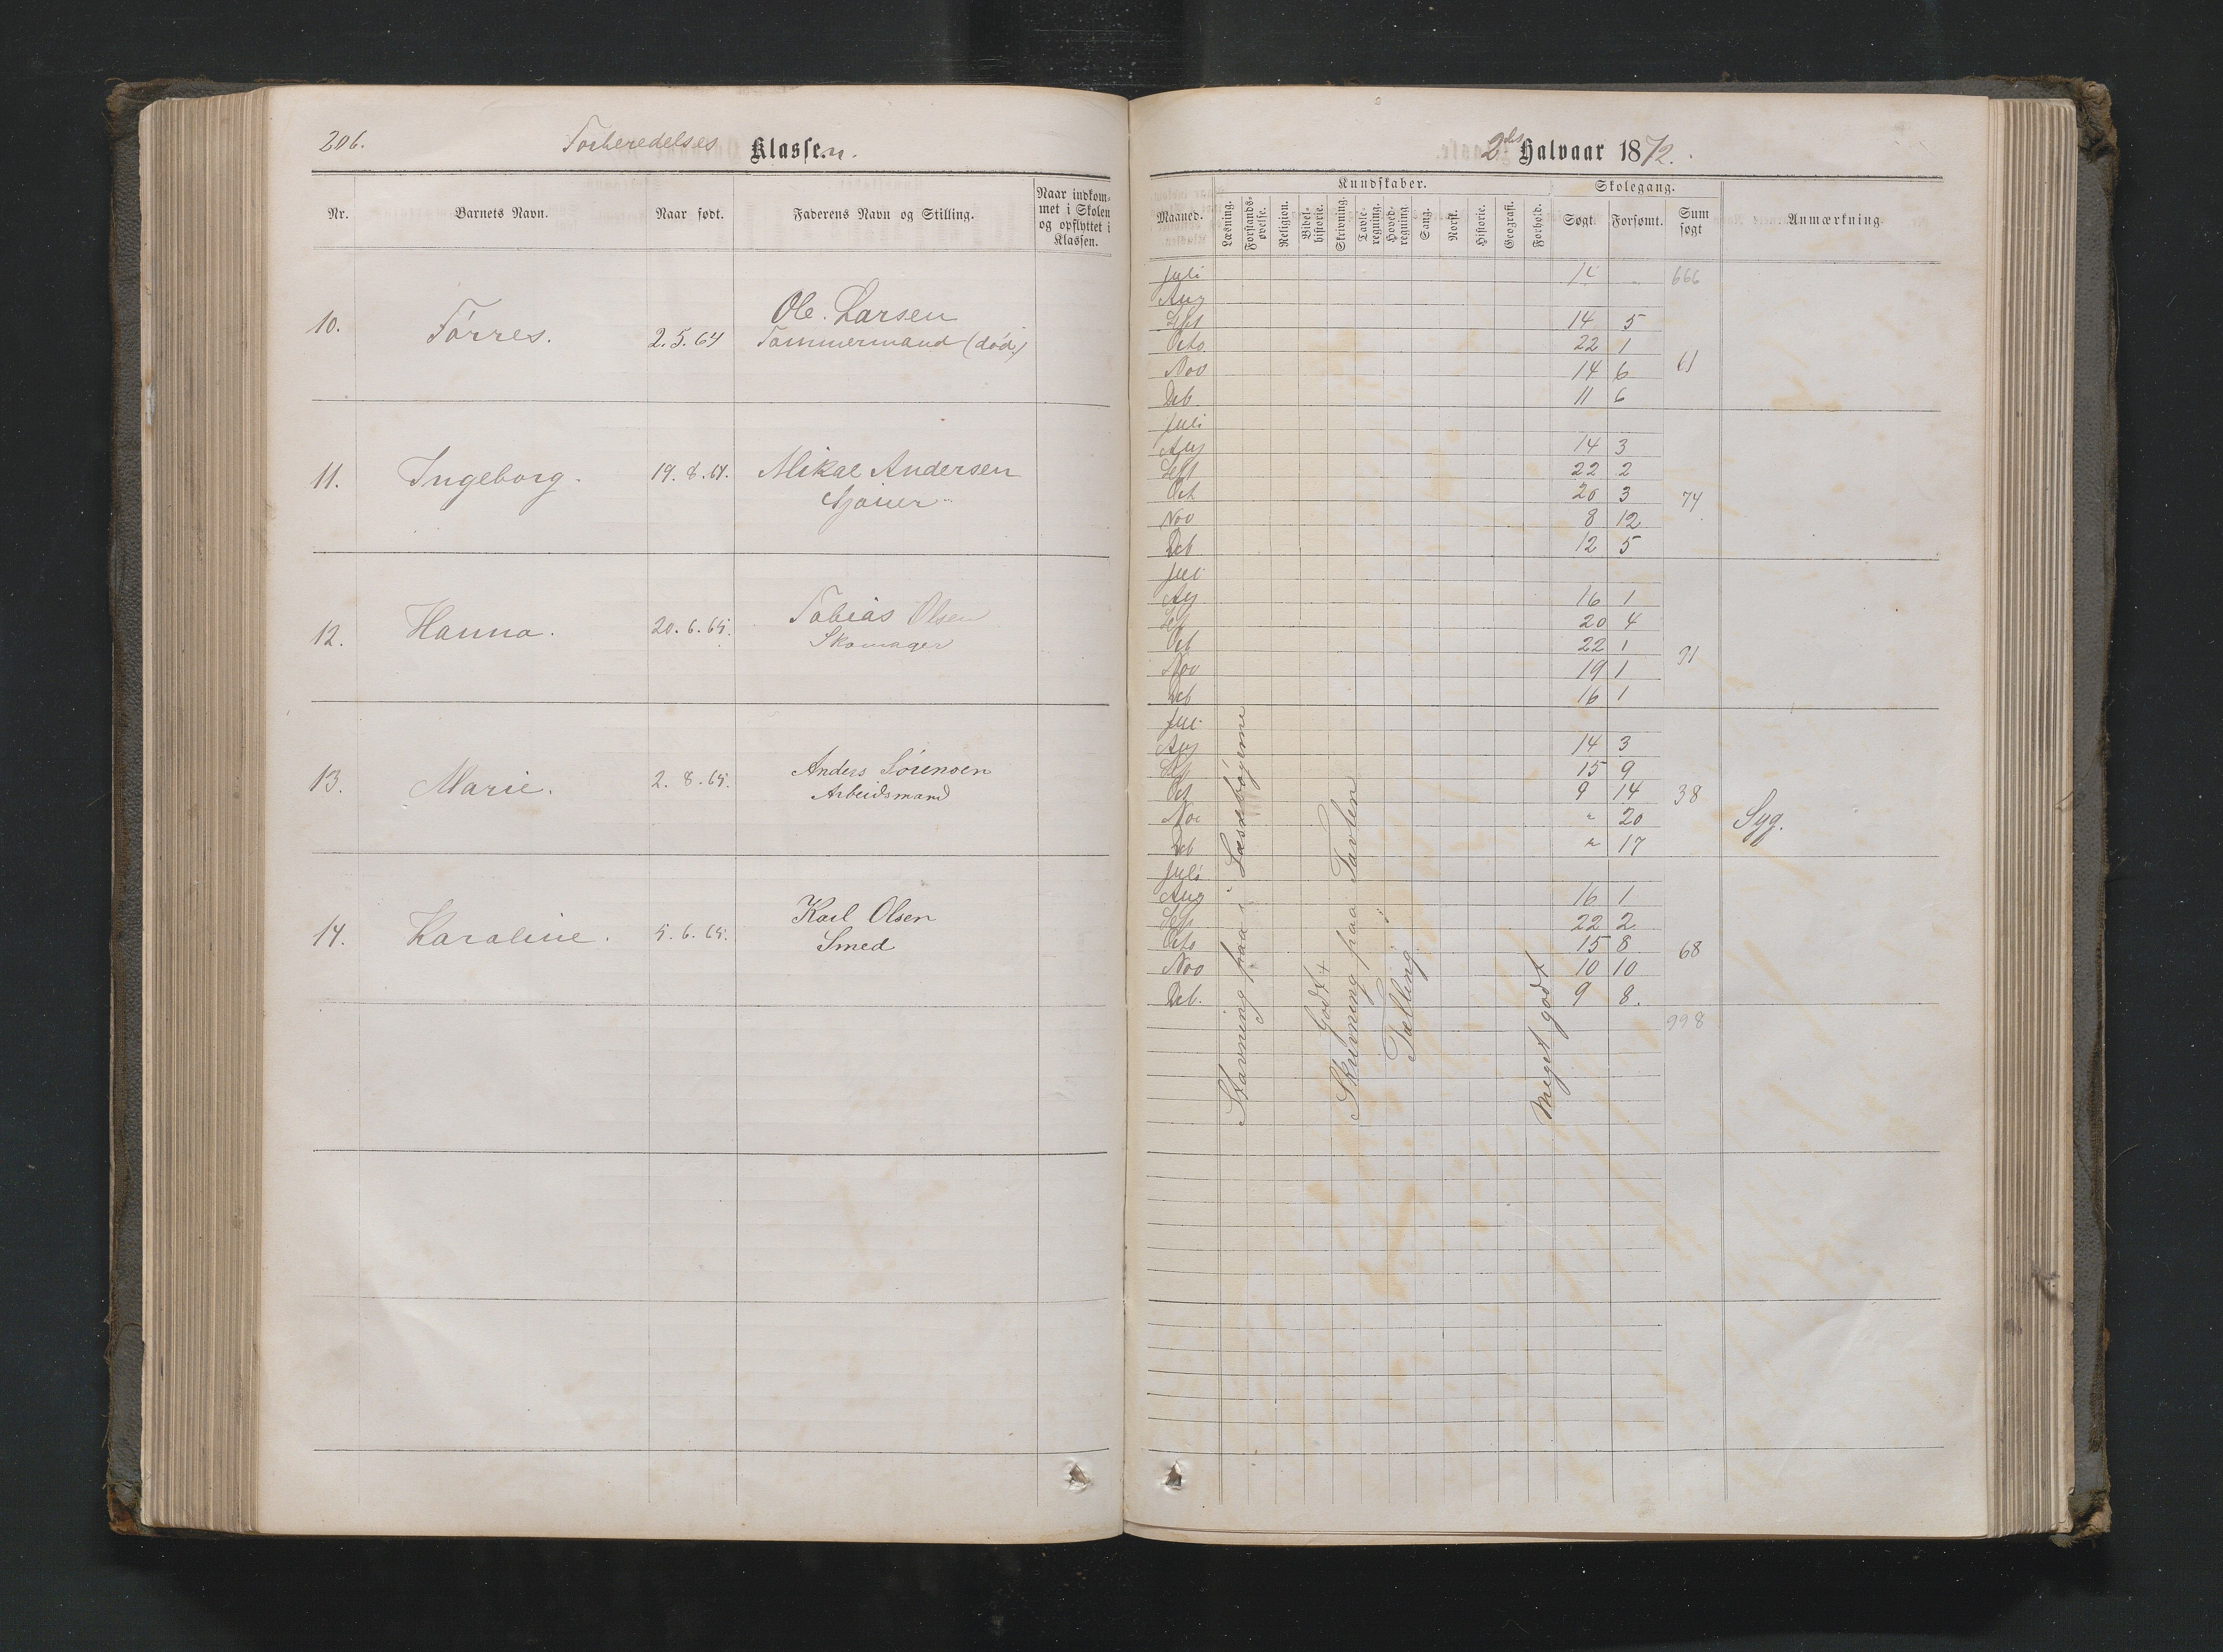 206.
Forberedelses Klassen.
Nr.
Barnets Navn.
Naar født.
Faderens Navn og Stilling.
Naar indkom-
met i Skolen
og opflyttet i
Klassen.
10.
Tørres.
2.5.64
Ole Larsen
Tømmermand (død)
11.
Ingeborg.
Mikal Andersen
12.
Hanna.
20.6.65.
Tobias Olsen
Skomager
13.
Marie.
2.8.65.
Anders Sørensen
Arbeidsmand
14.
Karoline.
5.6.65.
Karl Olsen
Smed
2det Halvaar 1872.
Maaned.
Kundskaber.
Læsning.
Forstands-
øvelse.
Religion.
Bibel-
historie.
Skrivning.
Tavle-
regning.
Hoved-
regning
Sang.
Norsk.
Historie.
Geografi.
Forhold.
Skolegang.
Søgt.
Forsømt.
Sum
søgt
Anmærkning.
Juli 14 666
Aug
Sept 14 5
Octo 22 1
Nov 14 6 61
Deb. 11 6
Juli
Aug 14 3
Sept 22 2
Oct 20 3 74
Nov 8 12
Deb 12 5
Juli
Aug 16 1
Sept 20 4
Oct 22 1
Nov 19 1 91
Deb 16 1
Juli
Aug 14 3
Sept 15 9
Oct 9 14 38
Nov " 20 Syg.
Deb " 17
Juli
Aug 16 1
Sept 22 2
Octo 15 8 68
Nov 10 10
Deb. 9 8.
998
Stavning paa i Læsebøgerne
Godt +
Skrivning paa Tavlen
Tælling
Meget godt